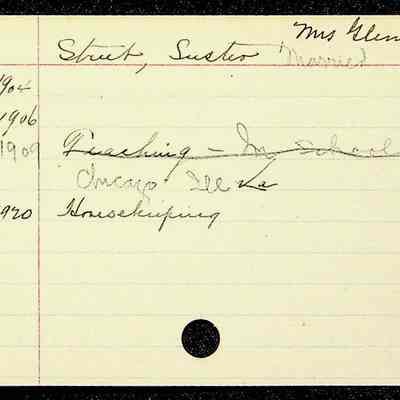 Mrs Glenn
Street, Suster Married
1904
1906
1909 Teaching - In School
Chicago Ill
1920 Housekeeping